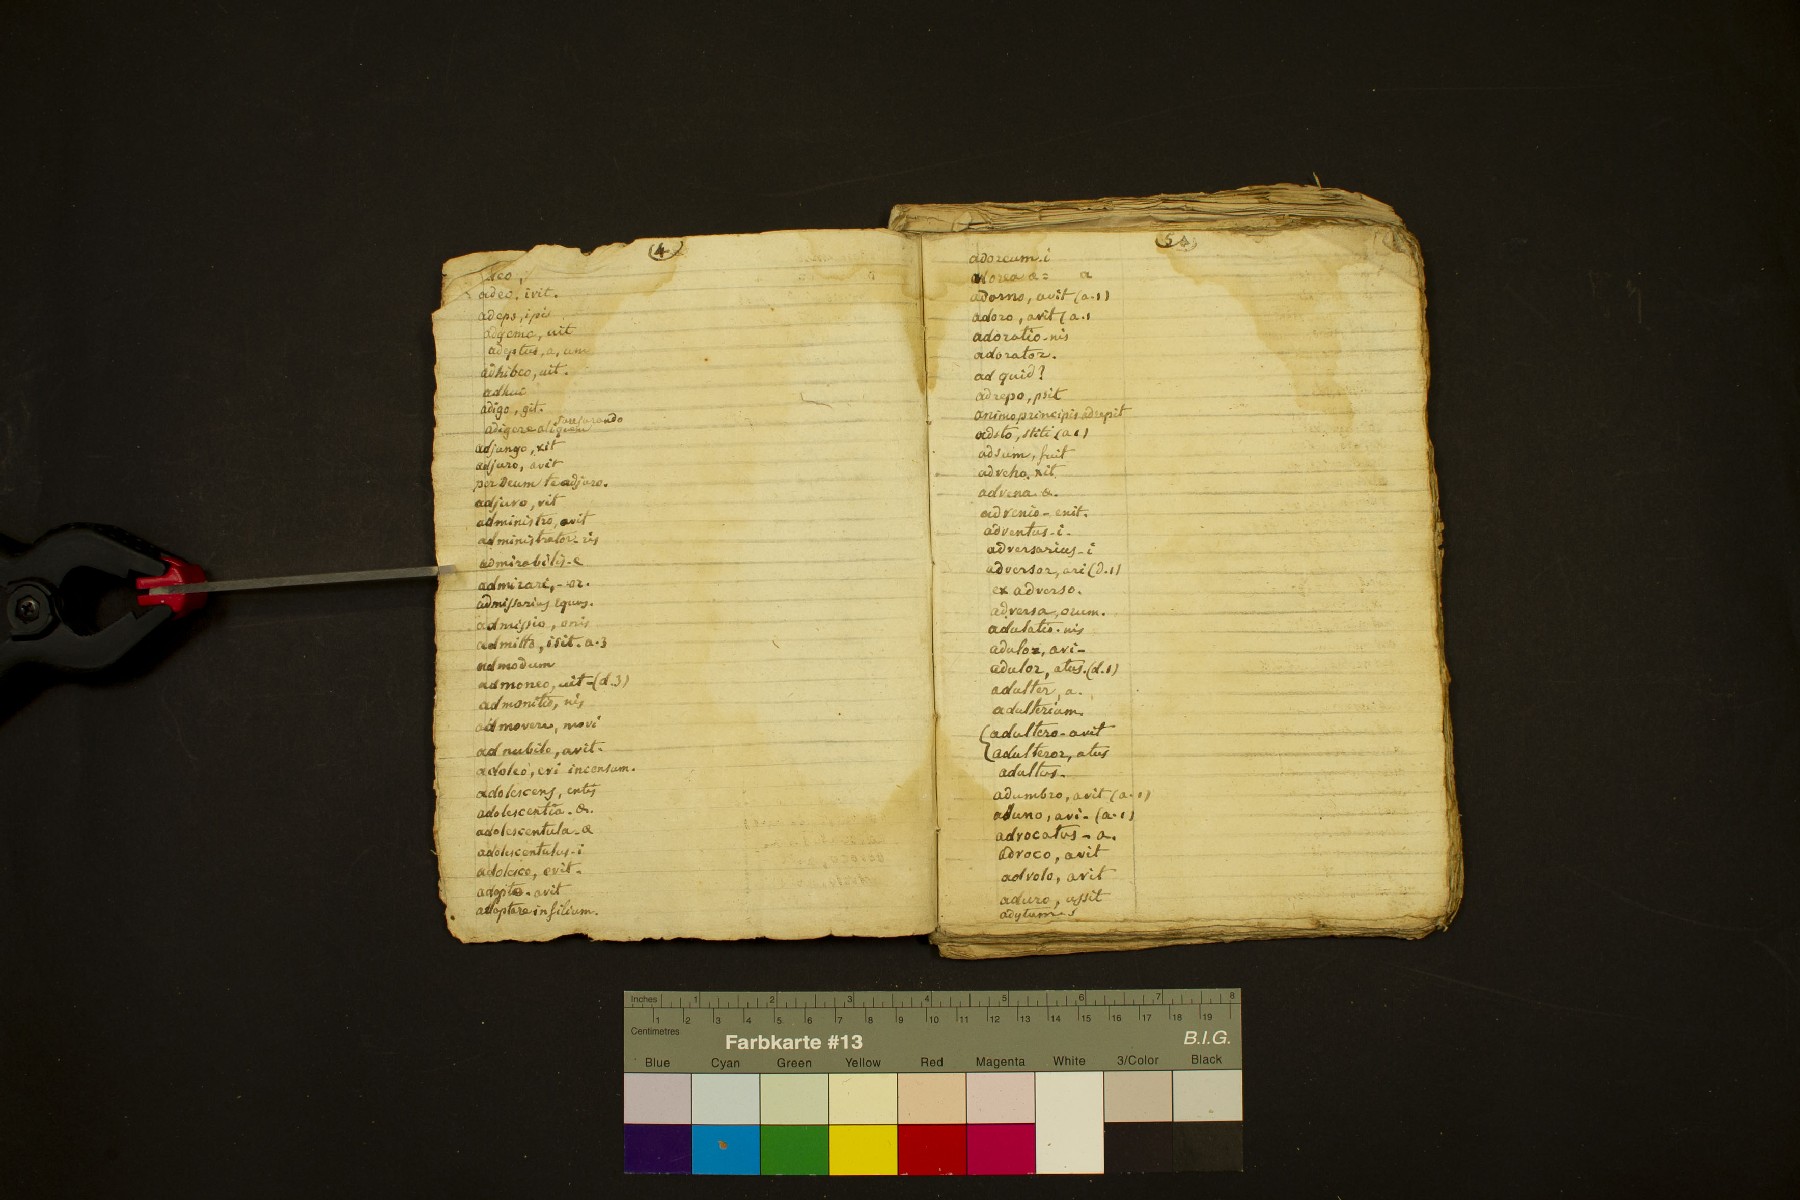 (4)
adeo, ivit.
adeps, ipi
adgemo, uit
adeptus, a, um
adhibeo, uit.
adhuc
adigo, git.
jurejurando
adigere aliquem
adjungo, xit
adjuro, avit
per Deum te adjuro.
adjuvo, vit
administro, avit
administrator-ris
admirabilis-e
admirari, -or.
admissarius equus.
admissio, onis
admitto, isit. a.3
admodum
admoneo, uit-(d.3)
admonitio, nis
admovere, movi
adnubilo, avit-
adoleo, evi incensum.
adolescens, entis
adolescentia-æ.
adolescentula-æ
adolescentulus-i
adolesco, evit-
adopto-avit
adoptare in filium.
(5)
adoreum-i
adorea æ= a
adorno, avit (a.1)
adoro, avit (a.1
adoratio-nis
adorator.
ad quid?
adrepo, psit
animo principis adrepit
adsto, stiti (a.1)
adsum, fuit
adveho, xit
advena-æ.
advenio-enit.
adventus-i-
adversarius-i
adversor, ari (d.1)
ex adverso.
adversa, orum.
adulatio-nis
adulor, ari-
adulor, atus.(d.1)
adulter, a.
adulterium.
adultero-avit
adulteror, atus
adultus-
adumbro, avit (a.1)
aduno, avi-(a.1)
advocatus-a.
advoco, avit
advolo, avit
aduro, ussit
adytum-i
Inches 1 2 3 4 5 6 7 8
1 2 3 4 5 6 7 8 9 10 11 12 13 14 15 16 17 18 19
Centimetres
Farbkarte #13 B.I.G.
Blue Cyan Green Yellow Red Magenta White 3/Color Black